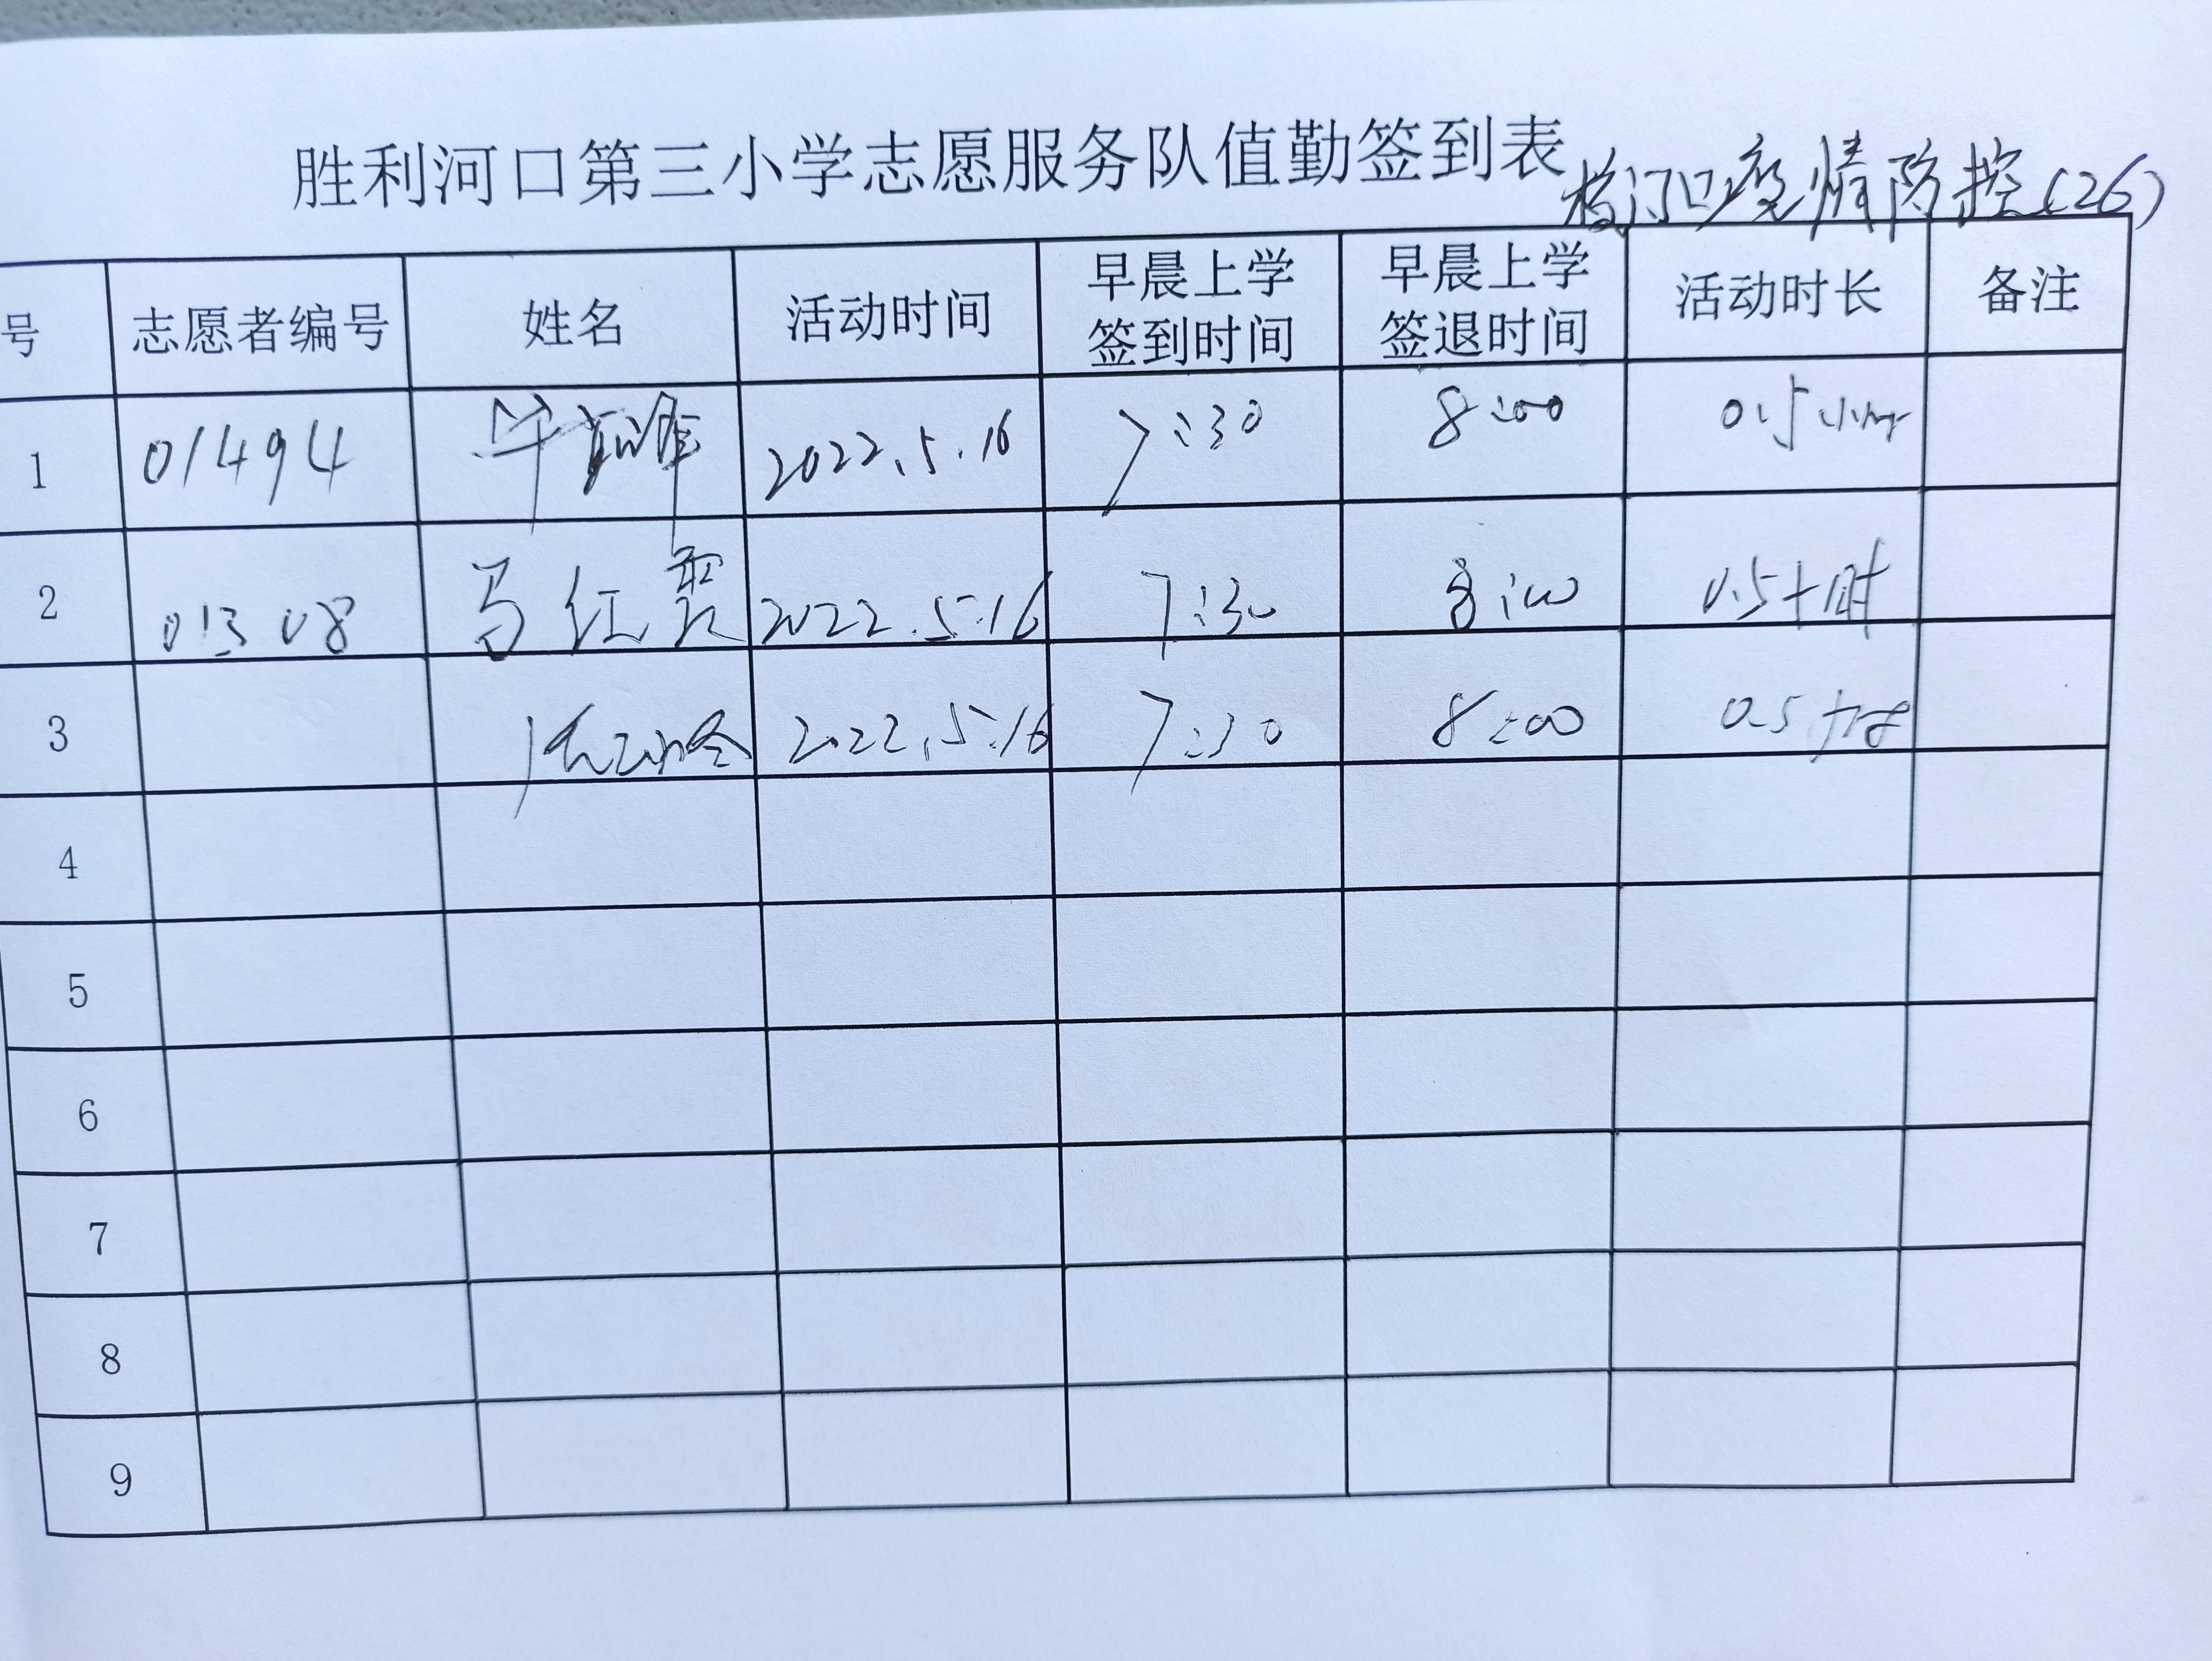 胜利河口第三小学志愿服务队值勤签到表 校门口疫情防控(26)
号 志愿者编号 姓名 活动时间 早晨上学签到时间 早晨上学签退时间 活动时长 备注
1 01494 2022.5.16 7:30 8:00 0.5小时
2 01308 马红霞 2022.5.16 7:30 8:00 0.5小时
3 2022.5.16 7:30 8:00 0.5小时
4
5
6
7
8
9